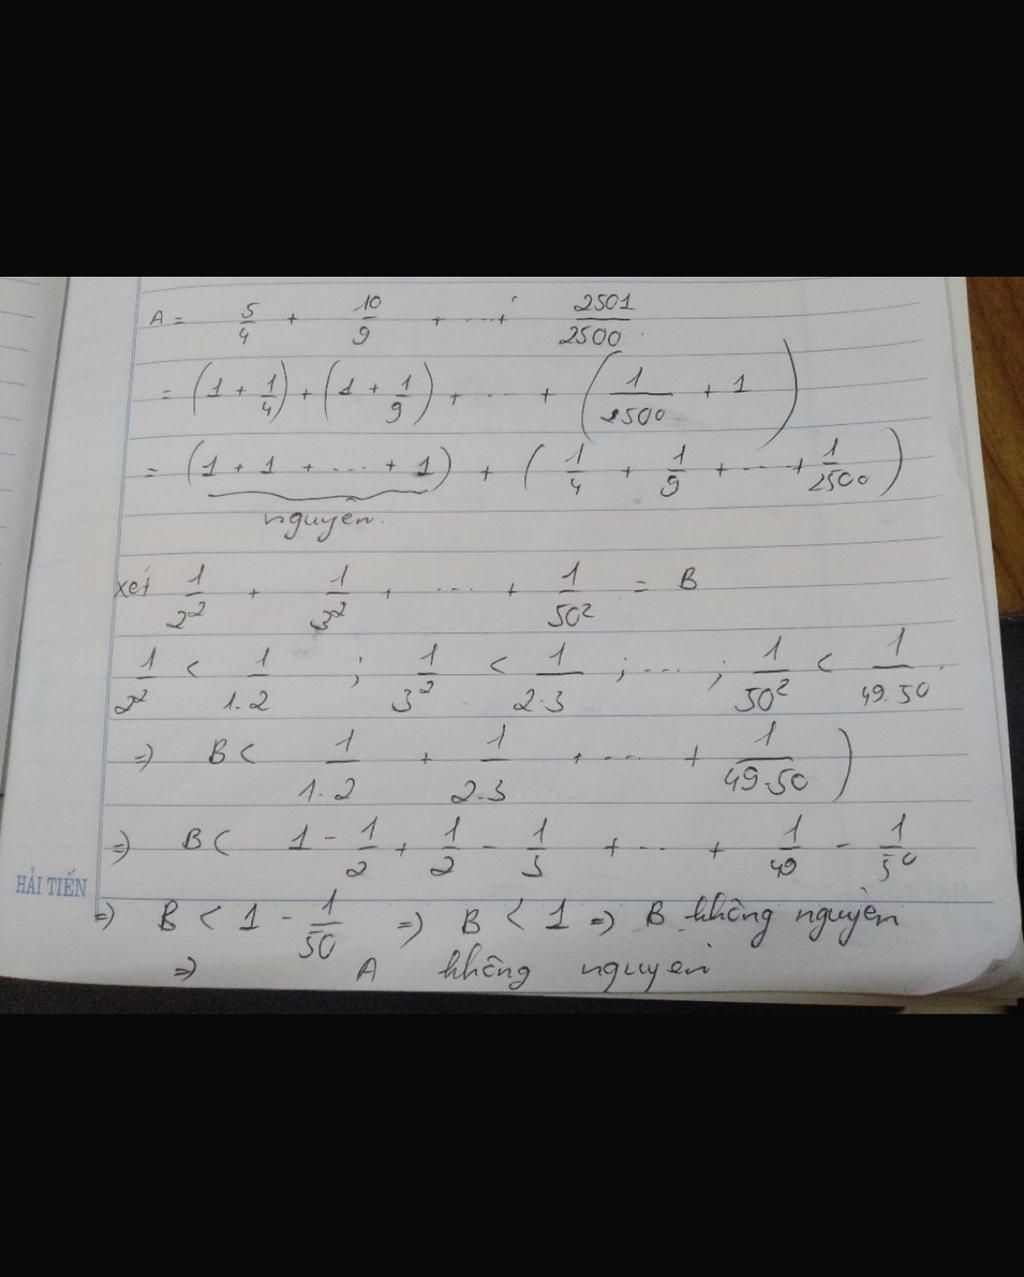 A = 5/4 + 10/9 + ... + 2501/2500
= (1 + 1/4) + (1 + 1/9) + ... + (1/2500 + 1)
= (1 + 1 + ... + 1) + (1/4 + 1/9 + ... + 1/2500)
nguyên.
xét 1/2² + 1/3² + ... + 1/50² = B
1/2² < 1/1.2 ; 1/3² < 1/2.3 ; ... ; 1/50² < 1/49.50
=> B < 1/1.2 + 1/2.3 + ... + 1/49.50 )
=> B < 1 - 1/2 + 1/2 - 1/3 + ... + 1/49 - 1/50
HẢI TIẾN
=> B < 1 - 1/50 => B < 1 => B không nguyên
=> A không nguyên